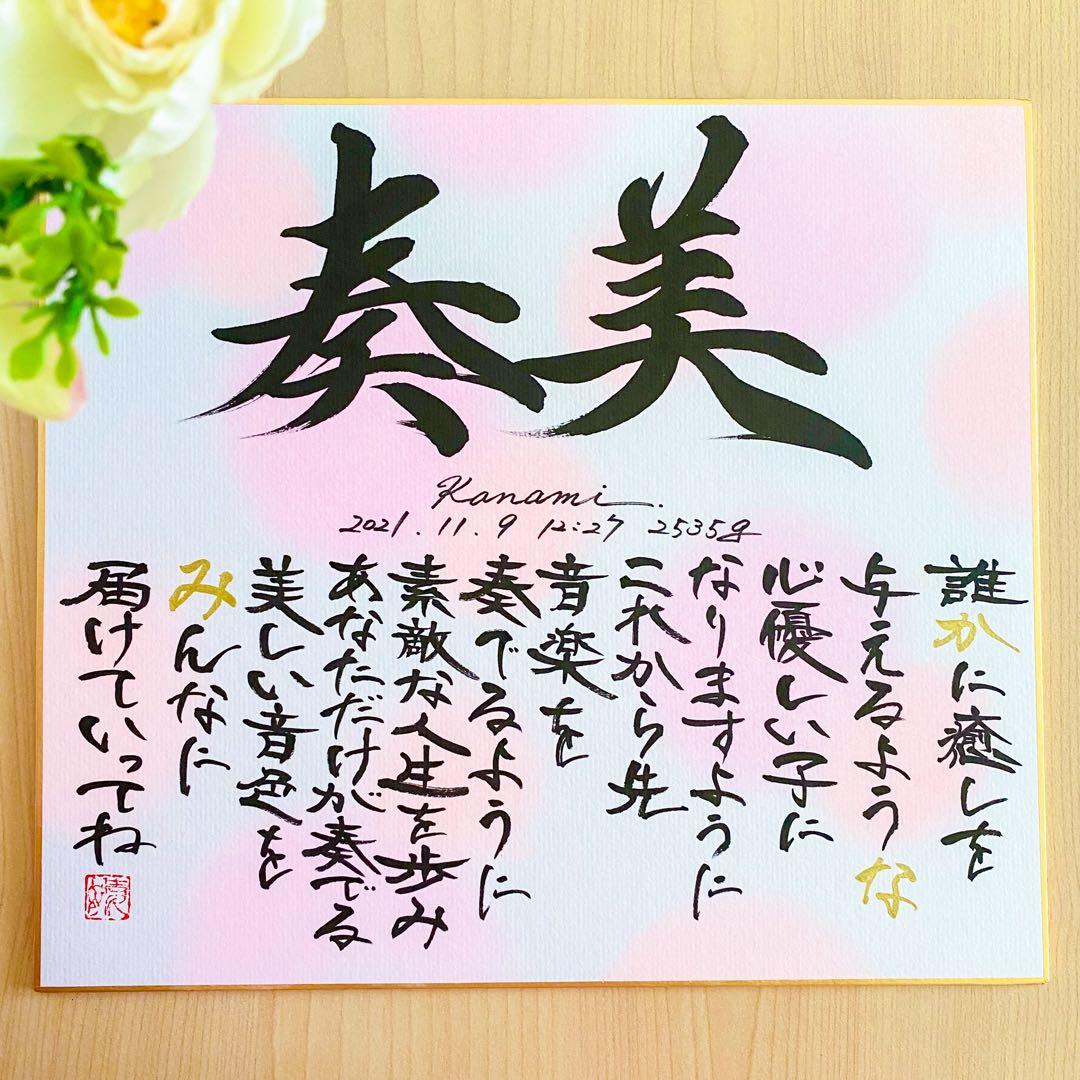 奏美
Kanami.
2021.11.9 12:27 2535g
誰かに癒しを
与えるような
心優しい子に
なりますように
これから先
音楽を
奏でるように
素敵な人生を歩み
あなただけが奏でる
美しい音色を
みんなに
届けていってね